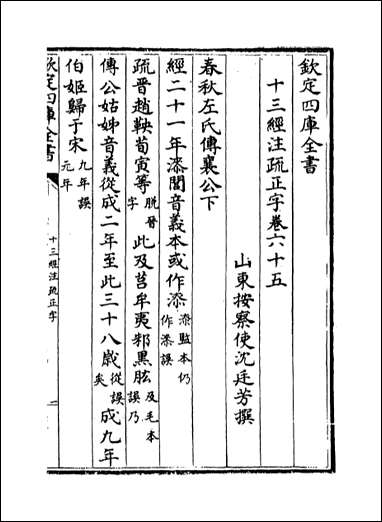 欽定四庫全書
十三經注疏正字卷六十五
山東按察使沈廷芳撰
春秋左氏傳襄公下
經二十一年漆閭音義本或作漆漆監本仍作漆誤
疏晉趙鞅荀寅等脱晉字此及莒牟夷邾黑肱及毛本誤乃
傳公姑姊音義從成二年至此三十八歳從誤矣成九年
伯姬歸于宋九年誤元年
欽定四庫全書
十三經注疏正字